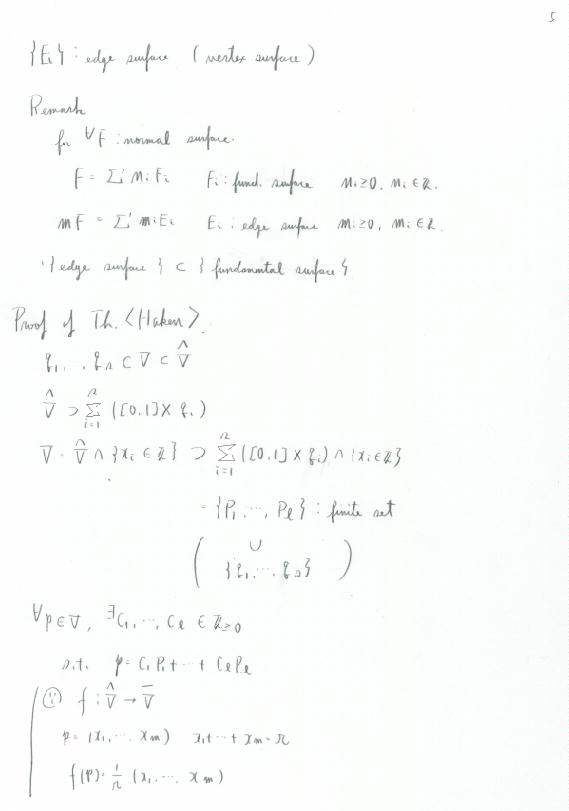 5
{Ei} : edge surface (vertex surface)
Remark
for ∀F : normal surface.
F = Σ' ni Fi   Fi : fund. surface   ni≥0, ni∈Z.
mF = Σ' miEi   Ei : edge surface   mi≥0, mi∈Z.
{edge surface} ⊂ {fundamental surface}
Proof of Th. <Haken>.
q1, ..., qn ⊂ V ⊂ V̂
V̂ ⊃ Σ_{i=1}^{n} ([0.1]×qi)
V = V̂ ∩ {xi∈Z} ⊃ Σ_{i=1}^{n} ([0.1]×qi) ∩ {xi∈Z}
= {P1, ..., Pℓ} : finite set
( ∪
{q1, ..., qn} )
∀p∈V, ∃C1, ..., Cℓ ∈ Z≥0
s.t. p = C1P1+...+CℓPℓ
∵ f : V̂ → V̄
p = (x1, ... xm)   x1+...+xm = r
f(p) = 1/r (x1, ... xm)